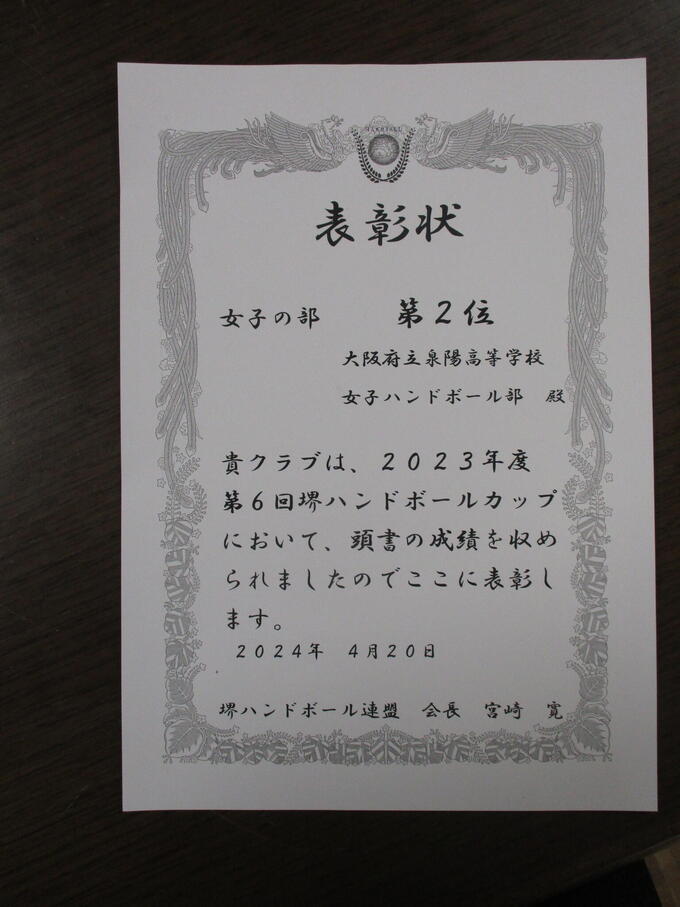 表彰状
女子の部　第２位
大阪府立泉陽高等学校
女子ハンドボール部　殿
貴クラブは、２０２３年度
第６回堺ハンドボールカップ
において、頭書の成績を収め
られましたのでここに表彰し
ます。
２０２４年　４月２０日
堺ハンドボール連盟　会長　宮崎　寛